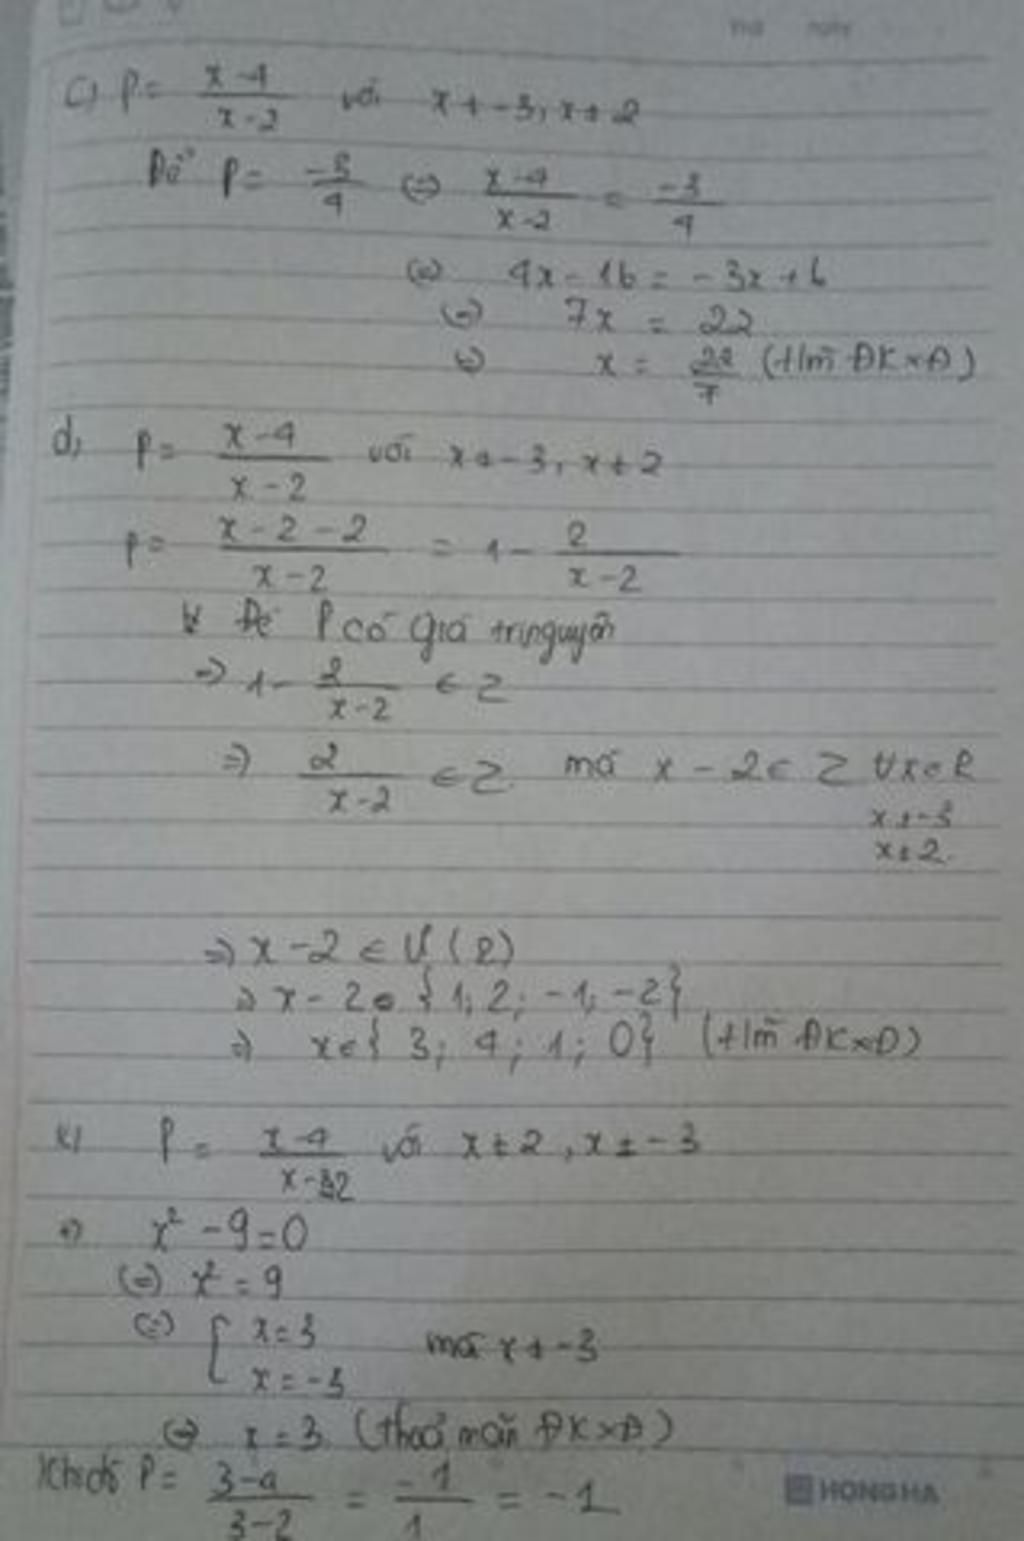 Thứ ngày
c) P = \frac{x-4}{x-2} với x ≠ -3, x ≠ 2
Để P = \frac{-3}{4} (=) \frac{x-4}{x-2} = \frac{-3}{4}
(=) 4x - 16 = -3x + 6
(=) 7x = 22
(=) x = \frac{22}{7} (t/m ĐKXĐ)
d, P = \frac{x-4}{x-2} với x ≠ -3, x ≠ 2
P = \frac{x-2-2}{x-2} = 1 - \frac{2}{x-2}
Để P có giá trị nguyên
=) 1 - \frac{2}{x-2} ∈ Z
=) \frac{2}{x-2} ∈ Z mà x - 2 ∈ Z ∀x ∈ R
x ≠ -3
x ≠ 2.
=) x - 2 ∈ Ư (2)
=) x - 2 ∈ {1; 2; -1; -2}
=) x ∈ { 3; 4; 1; 0} (t/m ĐKXĐ)
P = \frac{x-4}{x-2} với x ≠ 2, x ≠ -3
x² - 9 = 0
(=) x² = 9
(=) [ x = 3 mà x ≠ -3
x = -3
(=) x = 3 (thoả mãn ĐKXĐ)
Khi đó P = \frac{3-4}{3-2} = \frac{-1}{1} = -1
HONG HA